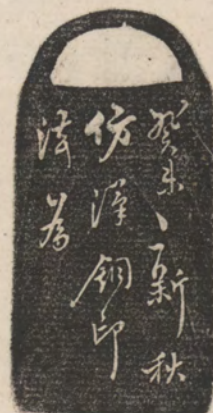 癸未新秋
仿漢銅印
法為